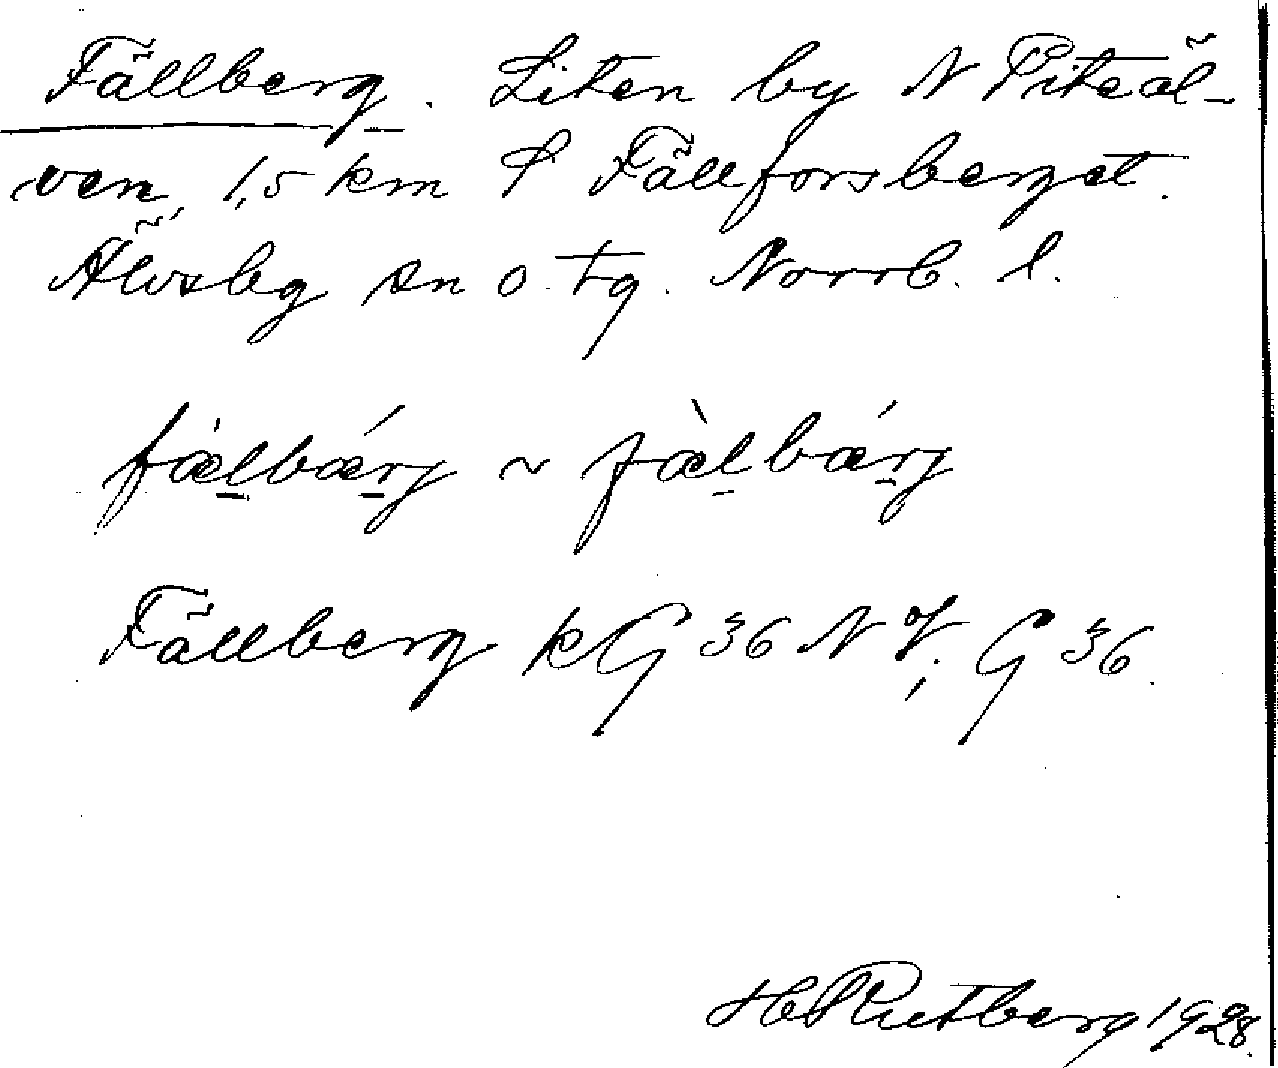 Fällberg. Liten by N Piteäl-
ven, 1,5 km S Fällforsberget.
Älvsby sn o. tg. Norrb. l.
fæ̀lbǽrj ~ fæ̀lbǽrj
Fällberg kG 36 N V; G 36.
H Rutberg 1928.